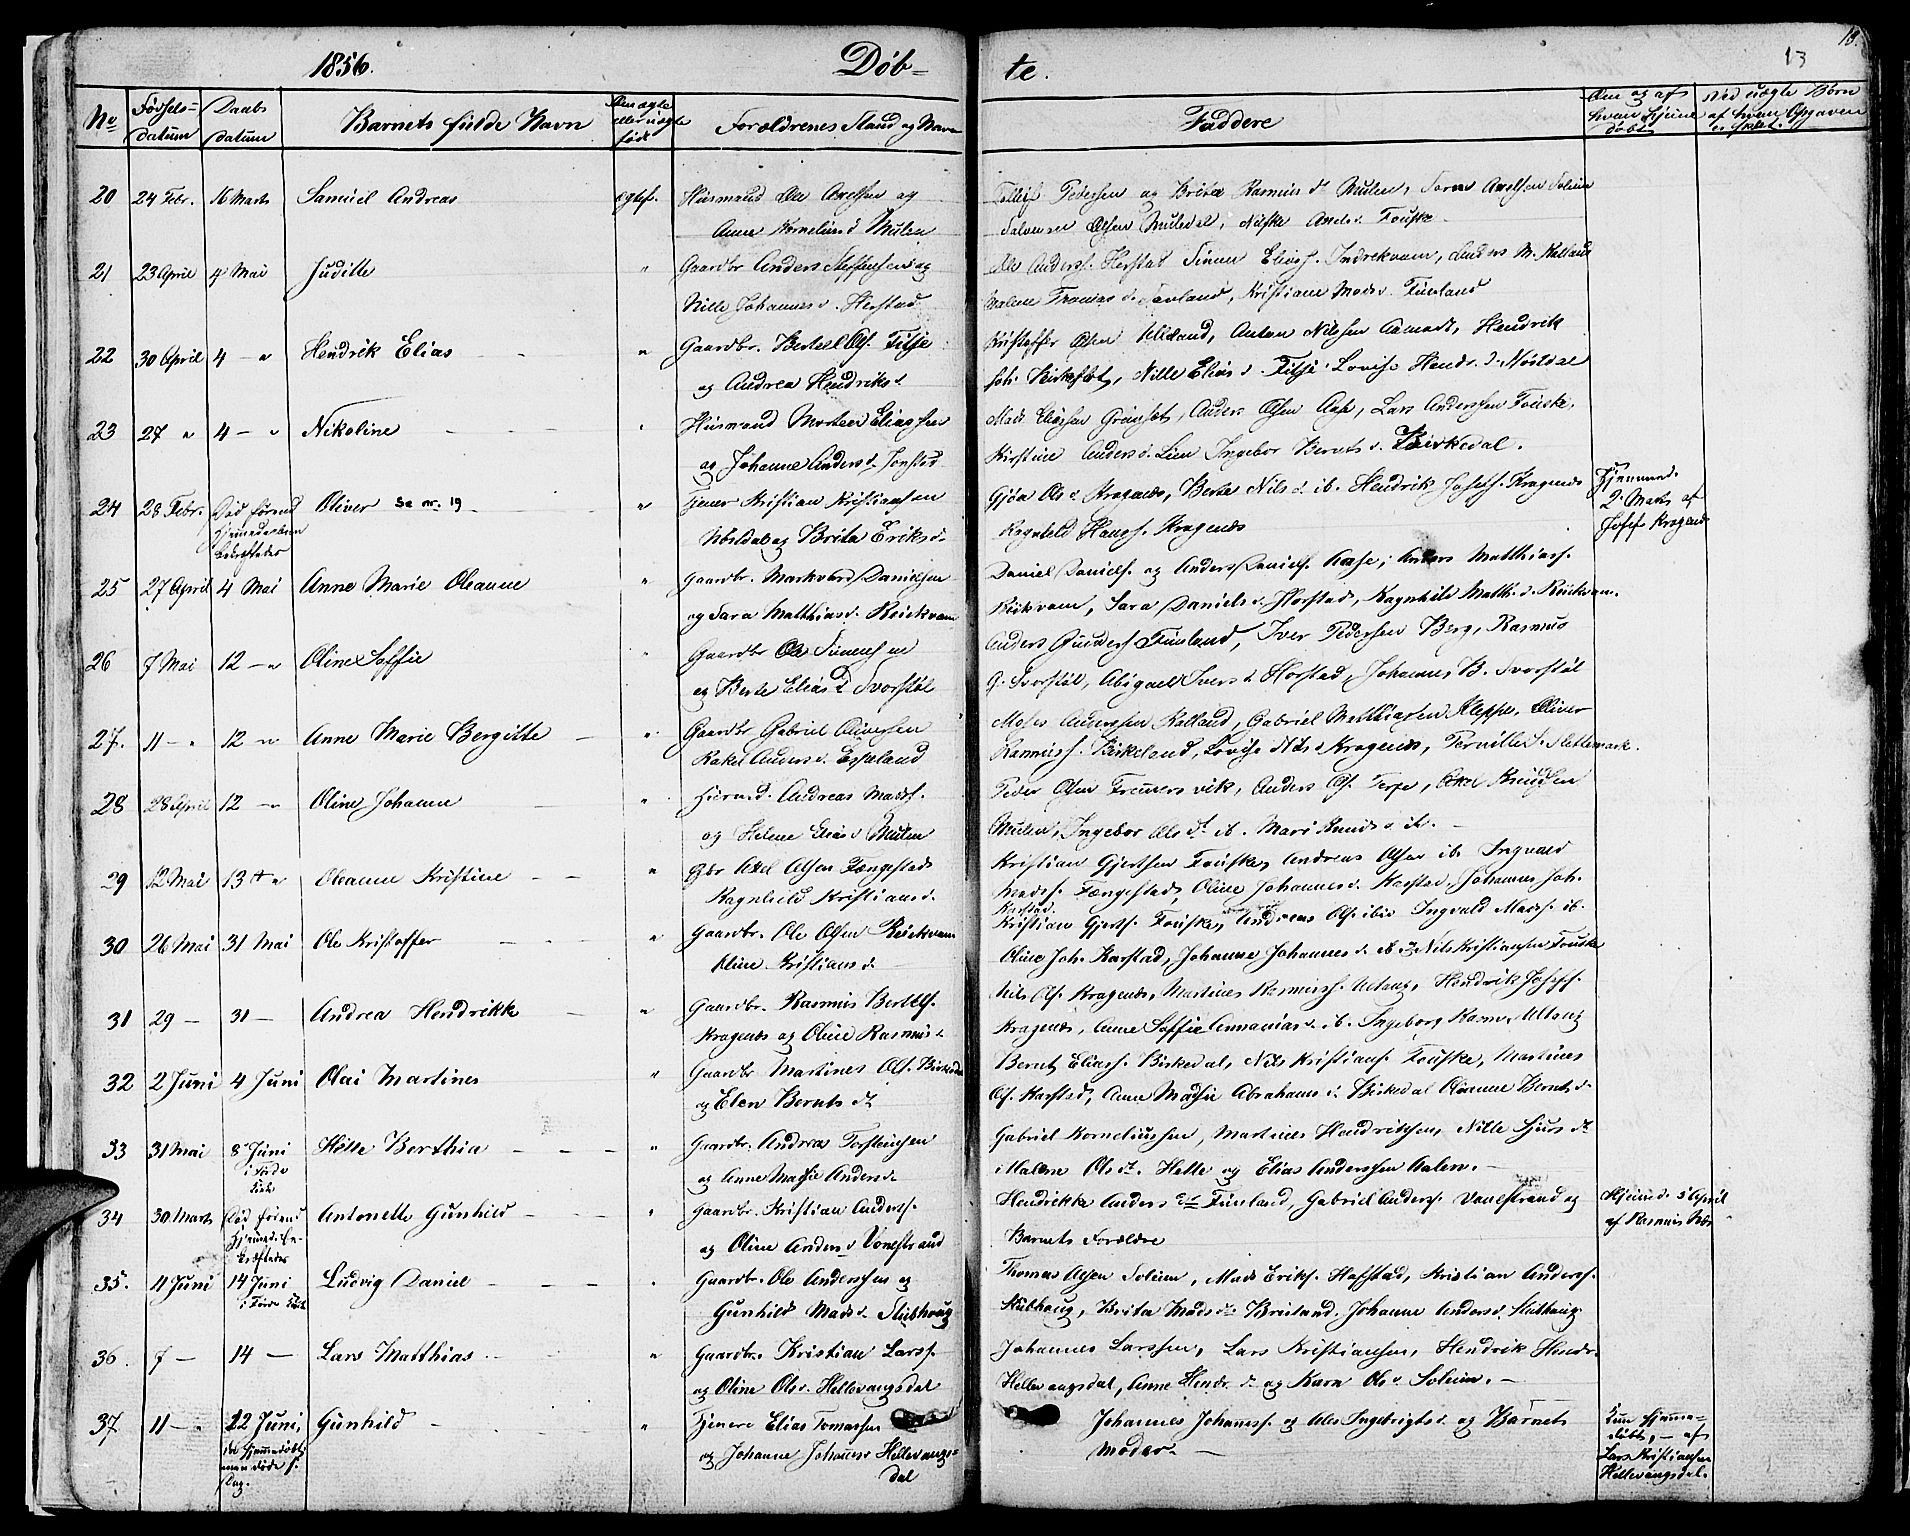 1856. Døb- te. 13 18.
No Fødsels= datum Daabs datum Barnets fulde Navn Om ægte eller uægte født Forældrenes Stand og Navn Faddere Om og af hvem hjemme døbt Ved uægte Børn af hvem Opgaven er sket.
20 24 Febr. 16 Marts Samuel Andreas ægtef. Husmand Ole Axelsen og
Anne Kornelius d Mulen
Pedersen og Brita Rasmus d Mulen, Axelsen Solem
Olsen Muledal, Niske Anders d. Fouske
21 23 April 4 Mai Juditte " Gaardbr Anders Steffensen og
Nille Johannes d. Herstad
Ole Anderss. Herstad Simen Elias s. Indrekvam, Anders M. Kalland
Sunland, Kristiane Mads d. Funland
22 30 April 4 — " Hendrik Elias " Gaardbr. Berteel Ols. Fitje
og Andrea Hendriks d
Kristoffer Olsen Ulland, Anton Nilsen Aamodt, Hendrik
Joh. Birkeflot, Nille Elias d. Fitje Lovise Hendr. d. Nøstdal
23 27 " 4 — " Nikoline " Husmand Morten Eliassen
og Johanne Anders d. Jonstad
Mads Eliassen Grimset, Anders Olsen Aase, Lars Anderssen Fouske,
Kirstine Anders d. Lien Ingebor Bernts d. Birkedal.
24 28 Febr. Død førend Hjemmedaaben bekræftedes Oliver Se nr. 19 " Tjener Kristian Kristiansen
Nøsdal og Brita Eriks d.
Gjøa Ols d Kragenæs, Berte Nils d. ib. Hendrik Josefs. Kragenæs
Ragnhild Hanss. Kragenæs
Hjemmed. 2 Marts af Josef Kragenæs
25 27 April 4 Mai Anne Marie Oleanne " Gaardbr. Markvard Danielsen
og Sara Matthias d. Reickvam
Daniel Daniels. og Anders Daniels. Aase, Anders Matthiass.
Reickvam, Sara Daniels d. Horstad, Ragnhild Matth. d. Reickvam.
26 7 Mai 12 — " Oline Soffie " Gaardbr Ole Simensen
og Berte Elias d Svorstøl
Anders Gunders. Funland, Iver Pedersen Berg, Rasmus
G. Svorstøl, Abigael Ivers d Horstad, Johanne B. Svorstøl
27. 11 — " 12 — " Anne Marie Bergitte " Gaardbr Gabriel Oliversen
Rakel Anders d. Espeland
Moses Anderssen Kalland, Gabriel Matthiassen Kleppe, Oliver
Rasmuss. Birkeland, Lovise Nils d Kragenæs, Pernille d. Slettemark.
28 28 April 12 — " Oline Johanne " Huusmd. Andreas Mads.
og Helene Elias d Mulen
Peder Olsen Tremersvik, Anders Ols. Terpe, Knudsen
Mulen, Ingebor Ols dt ib. Mari Knuds d ib. —
29 12 Mai 13 " Oleanne Kristine " Gbr Axel Olsen Tængestad
Ragnhild Kristians d.
Kristian Gjertsen Fouske, Andreas Olsen ib. Ingvald
Mads. Tængestad, Oline Johannes d. Karstad, Johanne Joh.
Karstad.
30 26 Mai 31 Mai Ole Kristoffer " Gaardbr. Ole Olsen Reickvam
Oline Kristians d
Kristian Gjerts. Fouske, Andreas Ols. ibid. Ingvald Mads. ib.
Oline Joh. Karstad, Johanne Johannes d. ib. Nils Kristiansen Fouske
31 29 — 31 — Andrea Hendrikke " Gaardbr. Rasmus Bertels.
Kragenæs og Oline Rasmus d
Nils Ols. Kragenæs, Martines Rasmuss. Utaug, Hendrik Josefs.
Kragenæs, Anne Soffie Annanias d. ib. Ingeborg Rasm. Utaug
32 2 Juni 4 Juni Olai Martines " Gaardbr Martines Ols. Birkedal
og Elen Bernts dt
Bernt Eliass. Birkedal, Nils Kristians. Fouske, Martines
Ols. Karstad, Anne Madsie Abrahams d Birkedal Oleanne Bernts d.
33 31 Mai 8 Juni i Førde Kirke Helle Berthia " Gaardbr. Andreas Torsteinsen
og Anne Marie Anders d.
Gabriel Korneliussen, Martines Hendriksen, Nille Sjurs dt
Malene Ols dt. Helle og Elias Anderssen Aalen. —
34 30 Marts Død førend Hjemmed. bekræftedes Antonette Gunhild " Gaardbr. Kristian Anderss.
og Oline Anders d Vonestrand
Hendrikke Anders dtr Funland, Gabriel Anders. Vonestrand og
Barnets Forældre
Hjemmed. 5 April af Rasmus Næs
35. 11 Juni 14 Juni i Førde Kirke Ludvig Daniel " Gaardbr. Ole Anderssen og
Gunhild Mads d. Stubhaug
Thomas Olsen Solem, Mads Eriks. Hafstad, Kristian Anderss.
Stubhaug, Brita Mads d. Breiland, Johanne Anders d. Stubhaug
36. 7 — 14 — Lars Matthias " Gaardbr. Kristian Larss.
og Oline Ols d. Hellevangsdal
Johannes Larssen, Lars Kristiansen, Hendrik Hendr.
Hellevangsdal, Anne Hendr. d. og Karn Ols d. Solem. —
37 11 — " 22 Juni, Gunhild " Tjenere Elias Tomassen
og Johanne Johannes d Hellevangsdal
Johannes Johanness. og Ales Ingebrigts d. og Barnets
Moder. —
Kun hjemmedøbt, — af Lars Kristiansen Hellevangsdal.